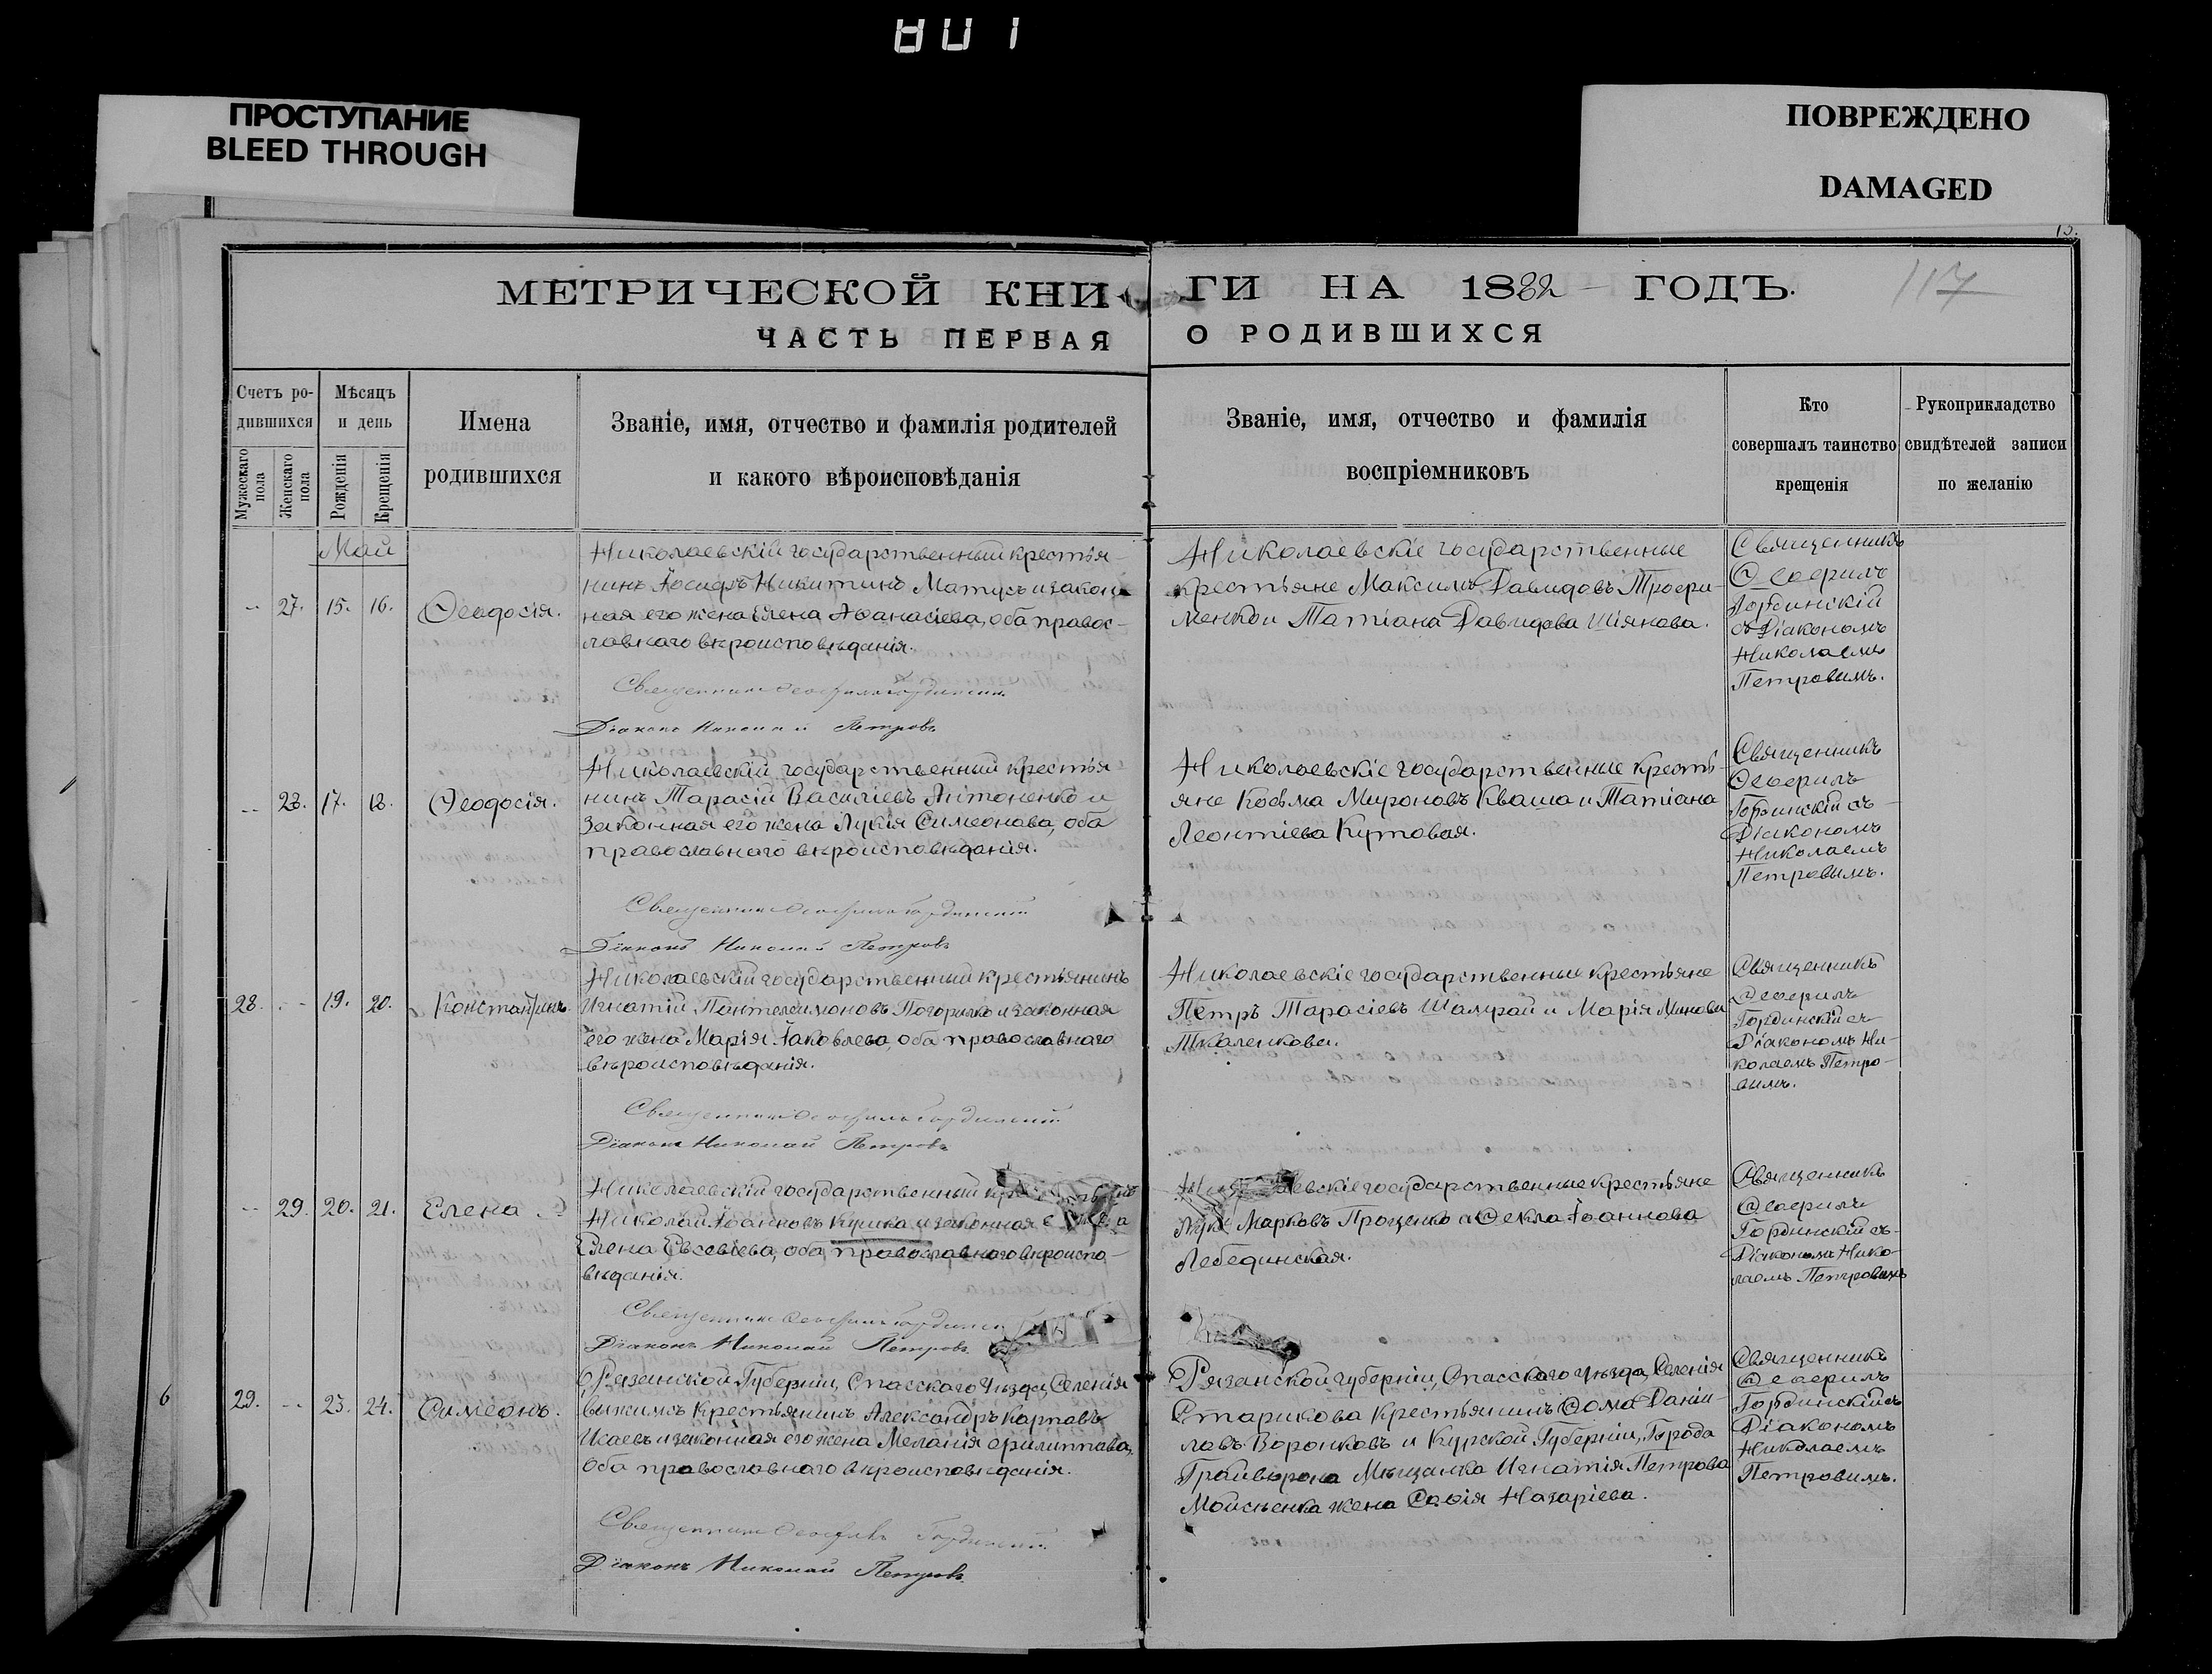 801
ПРОСТУПАНИЕ
BLEED THROUGH
ПОВРЕЖДЕНО
DAMAGED
13.
МЕТРИЧЕСКОЙ КНИ
ГИ НА 1882 ГОДЪ.
117
ЧАСТЬ ПЕРВАЯ
О РОДИВШИХСЯ
Счетъ ро-
дившихся
Мужескаго пола
Женскаго пола
Мѣсяцъ
и день
Рожденія
Крещенія
Имена
родившихся
Званіе, имя, отчество и фамилія родителей
и какого вѣроисповѣданія
Званіе, имя, отчество и фамилія
воспріемниковъ
Кто
совершалъ таинство
крещенія
Рукоприкладство
свидѣтелей записи
по желанію
Май
27. 15. 16. Ѳеодосія.
Николаевскій государственный крестья-
нинъ Іосифъ Никитинъ Матусъ и закон-
ная его жена Елена Аѳанасіева, оба правос-
лавнаго вѣроисповѣданія.
Священникъ Ѳеофилъ Гординскій
Діаконъ Николай Петровъ
Николаевскіе государственные
крестьяне Максимъ Давидовъ Трофи-
менко и Татіана Давидова Шіянова.
Священникъ
Ѳеофилъ
Гординскій
съ Діакономъ
Николаемъ
Петровымъ.
28. 17. 18. Ѳеодосія.
Николаевскій государственный крестья
нинъ Тарасій Василіевъ Антоненко и
законная его жена Лукія Симеонова, оба
православнаго вѣроисповѣданія.
Священникъ Ѳеофилъ Гординскій
Діаконъ Николай Петровъ
Николаевскіе государственные кресть-
яне Косьма Мироновъ Кваша и Татіана
Леонтіева Кутовая.
Священникъ
Ѳеофилъ
Гординскій съ
Діакономъ
Николаемъ
Петровымъ.
28. 19. 20. Константинъ.
Николаевскій государственный крестьянинъ
Игнатій Пантелеимоновъ Погорилко и законная
его жена Марія Іаковлева, оба православнаго
вѣроисповѣданія.
Священникъ Ѳеофилъ Гординскій
Діаконъ Николай Петровъ
Николаевскіе государственные крестьяне
Петръ Тарасіевъ Шамрай и Марія
Ткаленкова.
Священникъ
Ѳеофилъ
Гординскій съ
Діакономъ Ни-
колаемъ Петро-
вымъ.
29. 20. 21. Елена
Николаевскій государственный
Николай Іоанновъ Кушка и законная
Елена Евсевіева, оба православнаго вѣроиспо-
вѣданія.
Священникъ Ѳеофилъ Гординскій
Діаконъ Николай Петровъ
государственные крестьяне
Лука Марковъ Проценко и Ѳекла Іоаннова
Лебединская.
Священникъ
Ѳеофилъ
Гординскій съ
Діакономъ Нико-
лаемъ Петровымъ
6
29. 23. 24. Симеонъ.
Рязанской Губерніи, Спасскаго Уѣзда, Селенія
крестьянинъ Александръ Карповъ
Исаевъ и законная его жена Меланія Филиппова,
оба православнаго вѣроисповѣданія.
Священникъ Ѳеофилъ Гординскій
Діаконъ Николай Петровъ
Рязанской Губерніи, Спасскаго Уѣзда, Селенія
Старикова крестьянинъ Ѳома Даніи-
ловъ Воронковъ и Курской Губерніи, Города
Грайворона Мѣщанка Игнатія Петрова
Мойсѣенка жена Софія Назаріева.
Священникъ
Ѳеофилъ
Гординскій съ
Діакономъ
Николаемъ
Петровымъ.